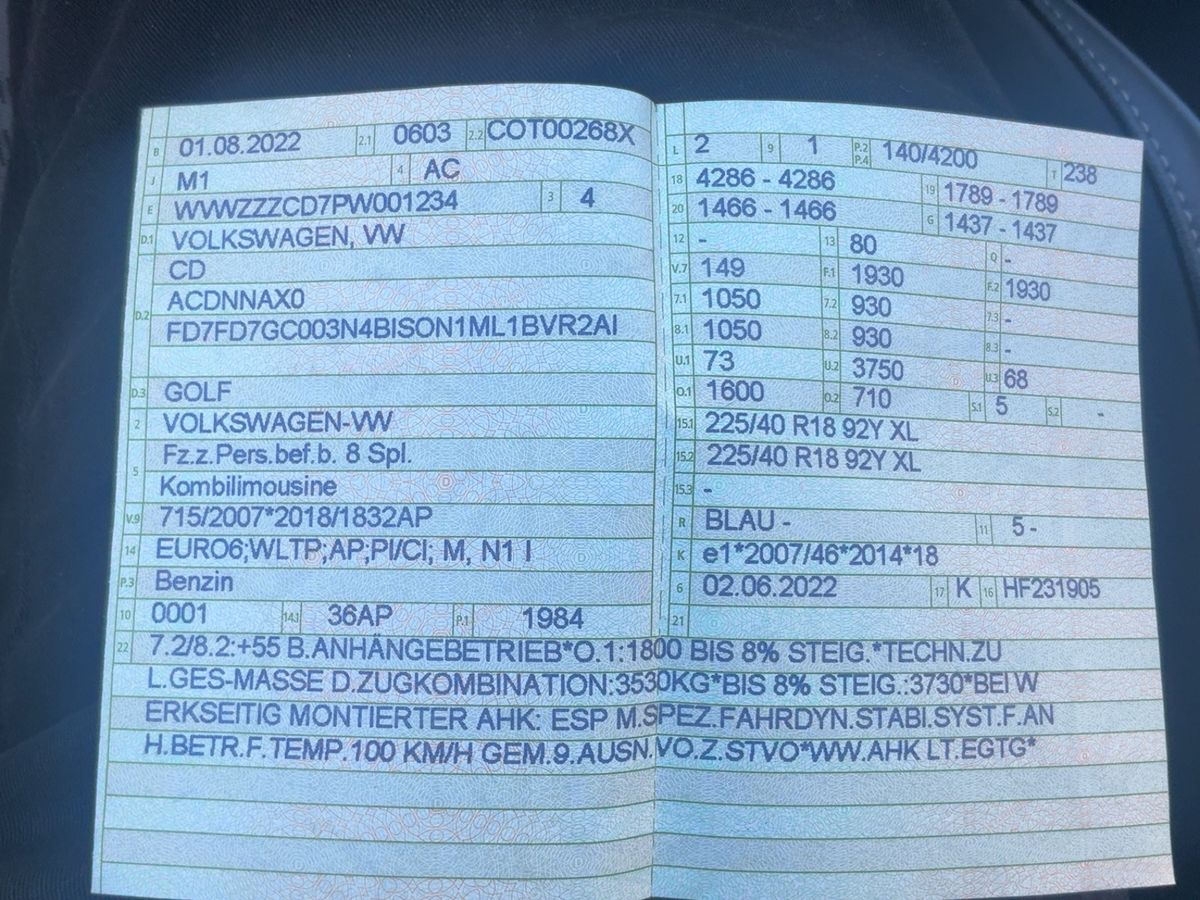 B 01.08.2022 2.1 0603 2.2 COT00268X
J M1 4 AC
E WVWZZZCD7PW001234 3 4
D.1 VOLKSWAGEN, VW
D.2 CD
ACDNNAX0
FD7FD7GC003N4BISON1ML1BVR2AI
D.3 GOLF
2 VOLKSWAGEN-VW
5 Fz.z.Pers.bef.b. 8 Spl.
Kombilimousine
V.9 715/2007*2018/1832AP
14 EURO6;WLTP;AP;PI/CI; M, N1 I
P.3 Benzin
10 0001 14.1 36AP P.1 1984
L 2 9 1 P.2 P.4 140/4200 T 238
18 4286 - 4286 19 1789 - 1789
20 1466 - 1466 G 1437 - 1437
12 - 13 80 Q -
V.7 149 F.1 1930 F.2 1930
7.1 1050 7.2 930 7.3 -
8.1 1050 8.2 930 8.3 -
U.1 73 U.2 3750 U.3 68
O.1 1600 O.2 710 S.1 5 S.2 -
15.1 225/40 R18 92Y XL
15.2 225/40 R18 92Y XL
15.3 -
R BLAU - 11 5 -
K e1*2007/46*2014*18
6 02.06.2022 17 K 16 HF231905
21
22 7.2/8.2:+55 B.ANHÄNGEBETRIEB*O.1:1800 BIS 8% STEIG.*TECHN.ZU
L.GES-MASSE D.ZUGKOMBINATION:3530KG*BIS 8% STEIG.:3730*BEI W
ERKSEITIG MONTIERTER AHK: ESP M.SPEZ.FAHRDYN.STABI.SYST.F.AN
H.BETR.F.TEMP.100 KM/H GEM.9.AUSN.VO.Z.STVO*WW.AHK LT.EGTG*